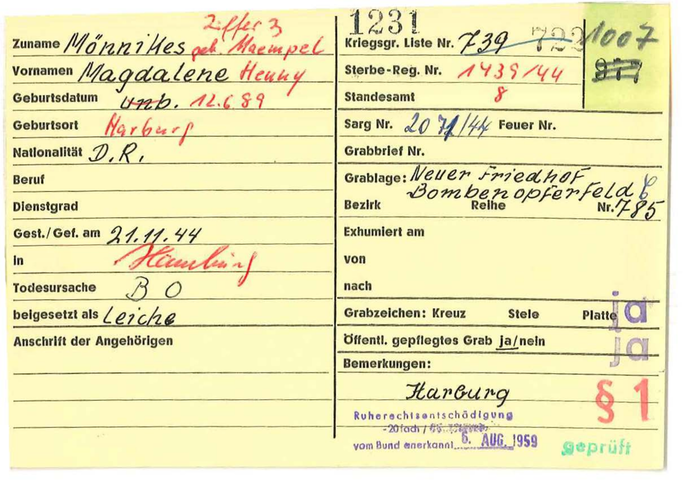 Ziffer 3
Zuname Mönnikes geb. Maempel
Vornamen Magdalene Henny
Geburtsdatum unb. 12.6.89
Geburtsort Harburg
Nationalität D.R.
Beruf
Dienstgrad
Gest./Gef. am 21.11.44
in Hamburg
Todesursache B O
beigesetzt als Leiche
Anschrift der Angehörigen
1231
Kriegsgr. Liste Nr. 739 722 1007
Sterbe-Reg. Nr. 1439/44 977
Standesamt 8
Sarg Nr. 2071/44 Feuer Nr.
Grabbrief Nr.
Grablage: Neuer Friedhof
Bombenopferfeld
Bezirk Reihe Nr. 785
Exhumiert am
von
nach
Grabzeichen: Kreuz Stele Platte ja
Öffentl. gepflegtes Grab ja/nein ja
Bemerkungen:
Harburg § 1
Ruherechtsentschädigung
-20fach /
vom Bund anerkannt 6. AUG. 1959
geprüft